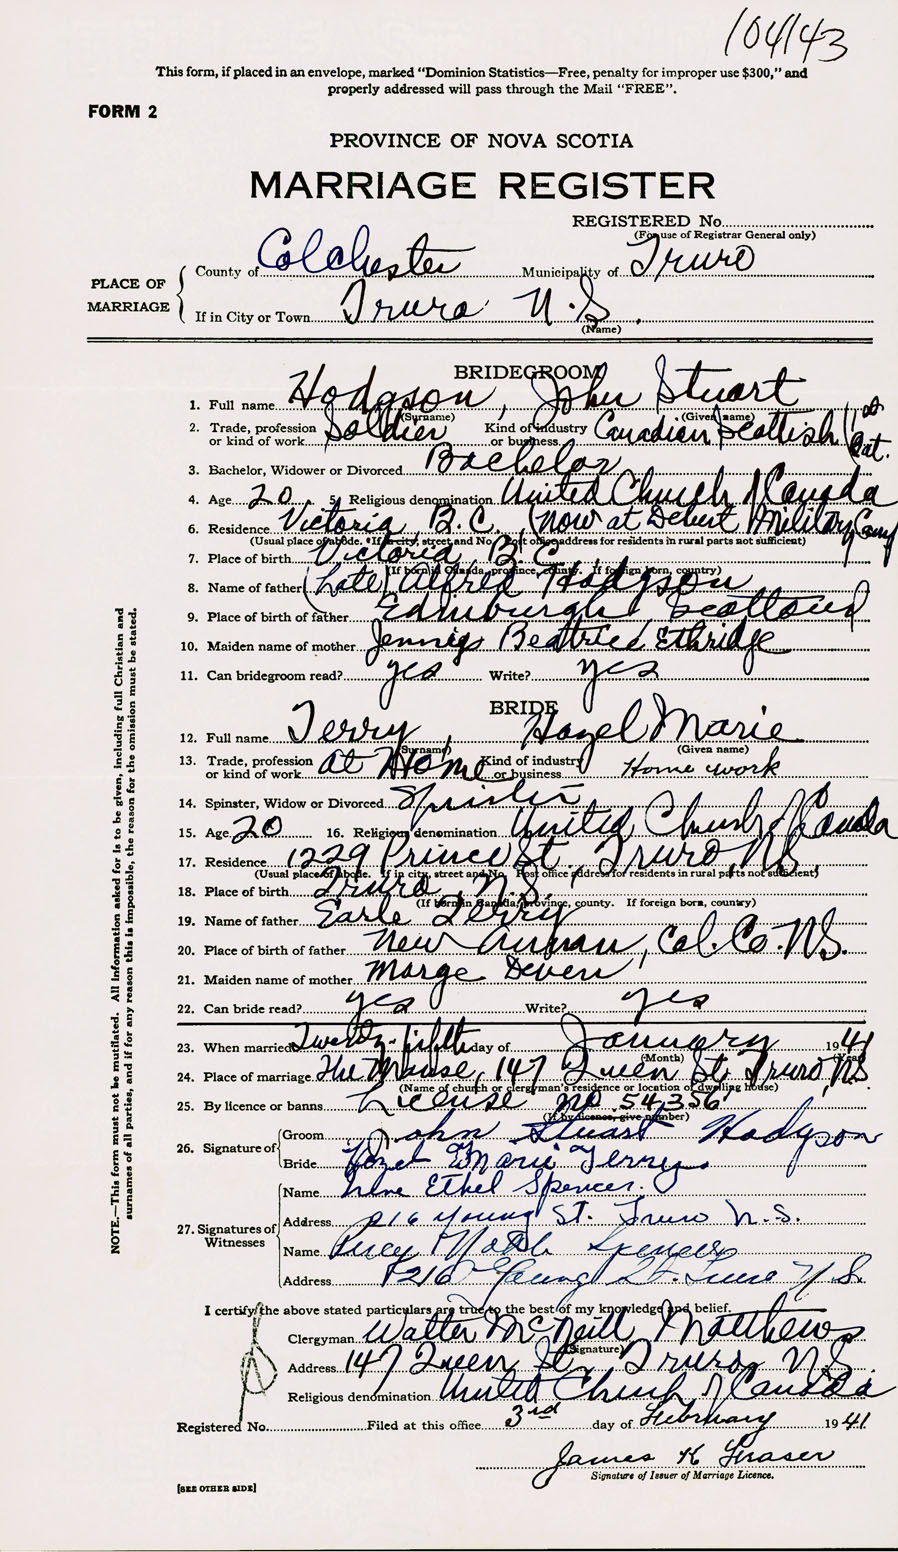 104143
This form, if placed in an envelope, marked "Dominion Statistics—Free, penalty for improper use $300," and
properly addressed will pass through the Mail "FREE".
FORM 2
PROVINCE OF NOVA SCOTIA
MARRIAGE REGISTER
REGISTERED No.
(For use of Registrar General only)
PLACE OF MARRIAGE
County of Colchester Municipality of Truro
If in City or Town Truro N.S.
(Name)
BRIDEGROOM
1. Full name Hodgson, John Stuart
(Surname) (Given name)
2. Trade, profession or kind of work Soldier Kind of industry or business Canadian Scottish (1st Bat.
3. Bachelor, Widower or Divorced Bachelor
4. Age 20 5. Religious denomination United Church of Canada
6. Residence Victoria, B.C. (now at Debert Military Camp
(Usual place of abode. If in city, street and No. Post office address for residents in rural parts not sufficient)
7. Place of birth Victoria B.C.
(If born in Canada, province, county. If foreign born, country)
8. Name of father (Late) Alfred Hodgson
9. Place of birth of father Edinburgh Scotland
10. Maiden name of mother Beatrice Ethridge
11. Can bridegroom read? yes Write? yes
BRIDE
12. Full name Terry, Hazel Marie
(Surname) (Given name)
13. Trade, profession or kind of work At Home Kind of industry or business Home work
14. Spinster, Widow or Divorced Spinster
15. Age 20 16. Religious denomination United Church of Canada
17. Residence 1229 Prince St. Truro, N.S.
(Usual place of abode. If in city, street and No. Post office address for residents in rural parts not sufficient)
18. Place of birth Truro, N.S.
(If born in Canada, province, county. If foreign born, country)
19. Name of father Earle Terry
20. Place of birth of father New Annan, Col. Co. N.S.
21. Maiden name of mother Marge
22. Can bride read? yes Write? yes
23. When married Twenty-fifth day of January 1941
(Month) (Year)
24. Place of marriage The Manse, 147 Queen St. Truro N.S.
(Name of church or clergyman's residence or location of dwelling house)
25. By licence or banns License no. 54356
(If by licence, give number)
26. Signature of
Groom John Stuart Hodgson
Bride Hazel Marie Terry
27. Signatures of Witnesses
Name Ethel Spencer.
Address 216 Young St. Truro N.S.
Name Percy Spencer
Address 216 Young St. Truro N.S.
I certify the above stated particulars are true to the best of my knowledge and belief.
Clergyman Walter McNeill Matthews
(Signature)
Address 147 Queen St. Truro, N.S.
Religious denomination United Church of Canada
Registered No. Filed at this office 3rd day of February 1941.
James K Fraser
Signature of Issuer of Marriage Licence.
[SEE OTHER SIDE]
NOTE.—This form must not be mutilated. All information asked for is to be given, including full Christian and
surnames of all parties, and if for any reason this is impossible, the reason for the omission must be stated.